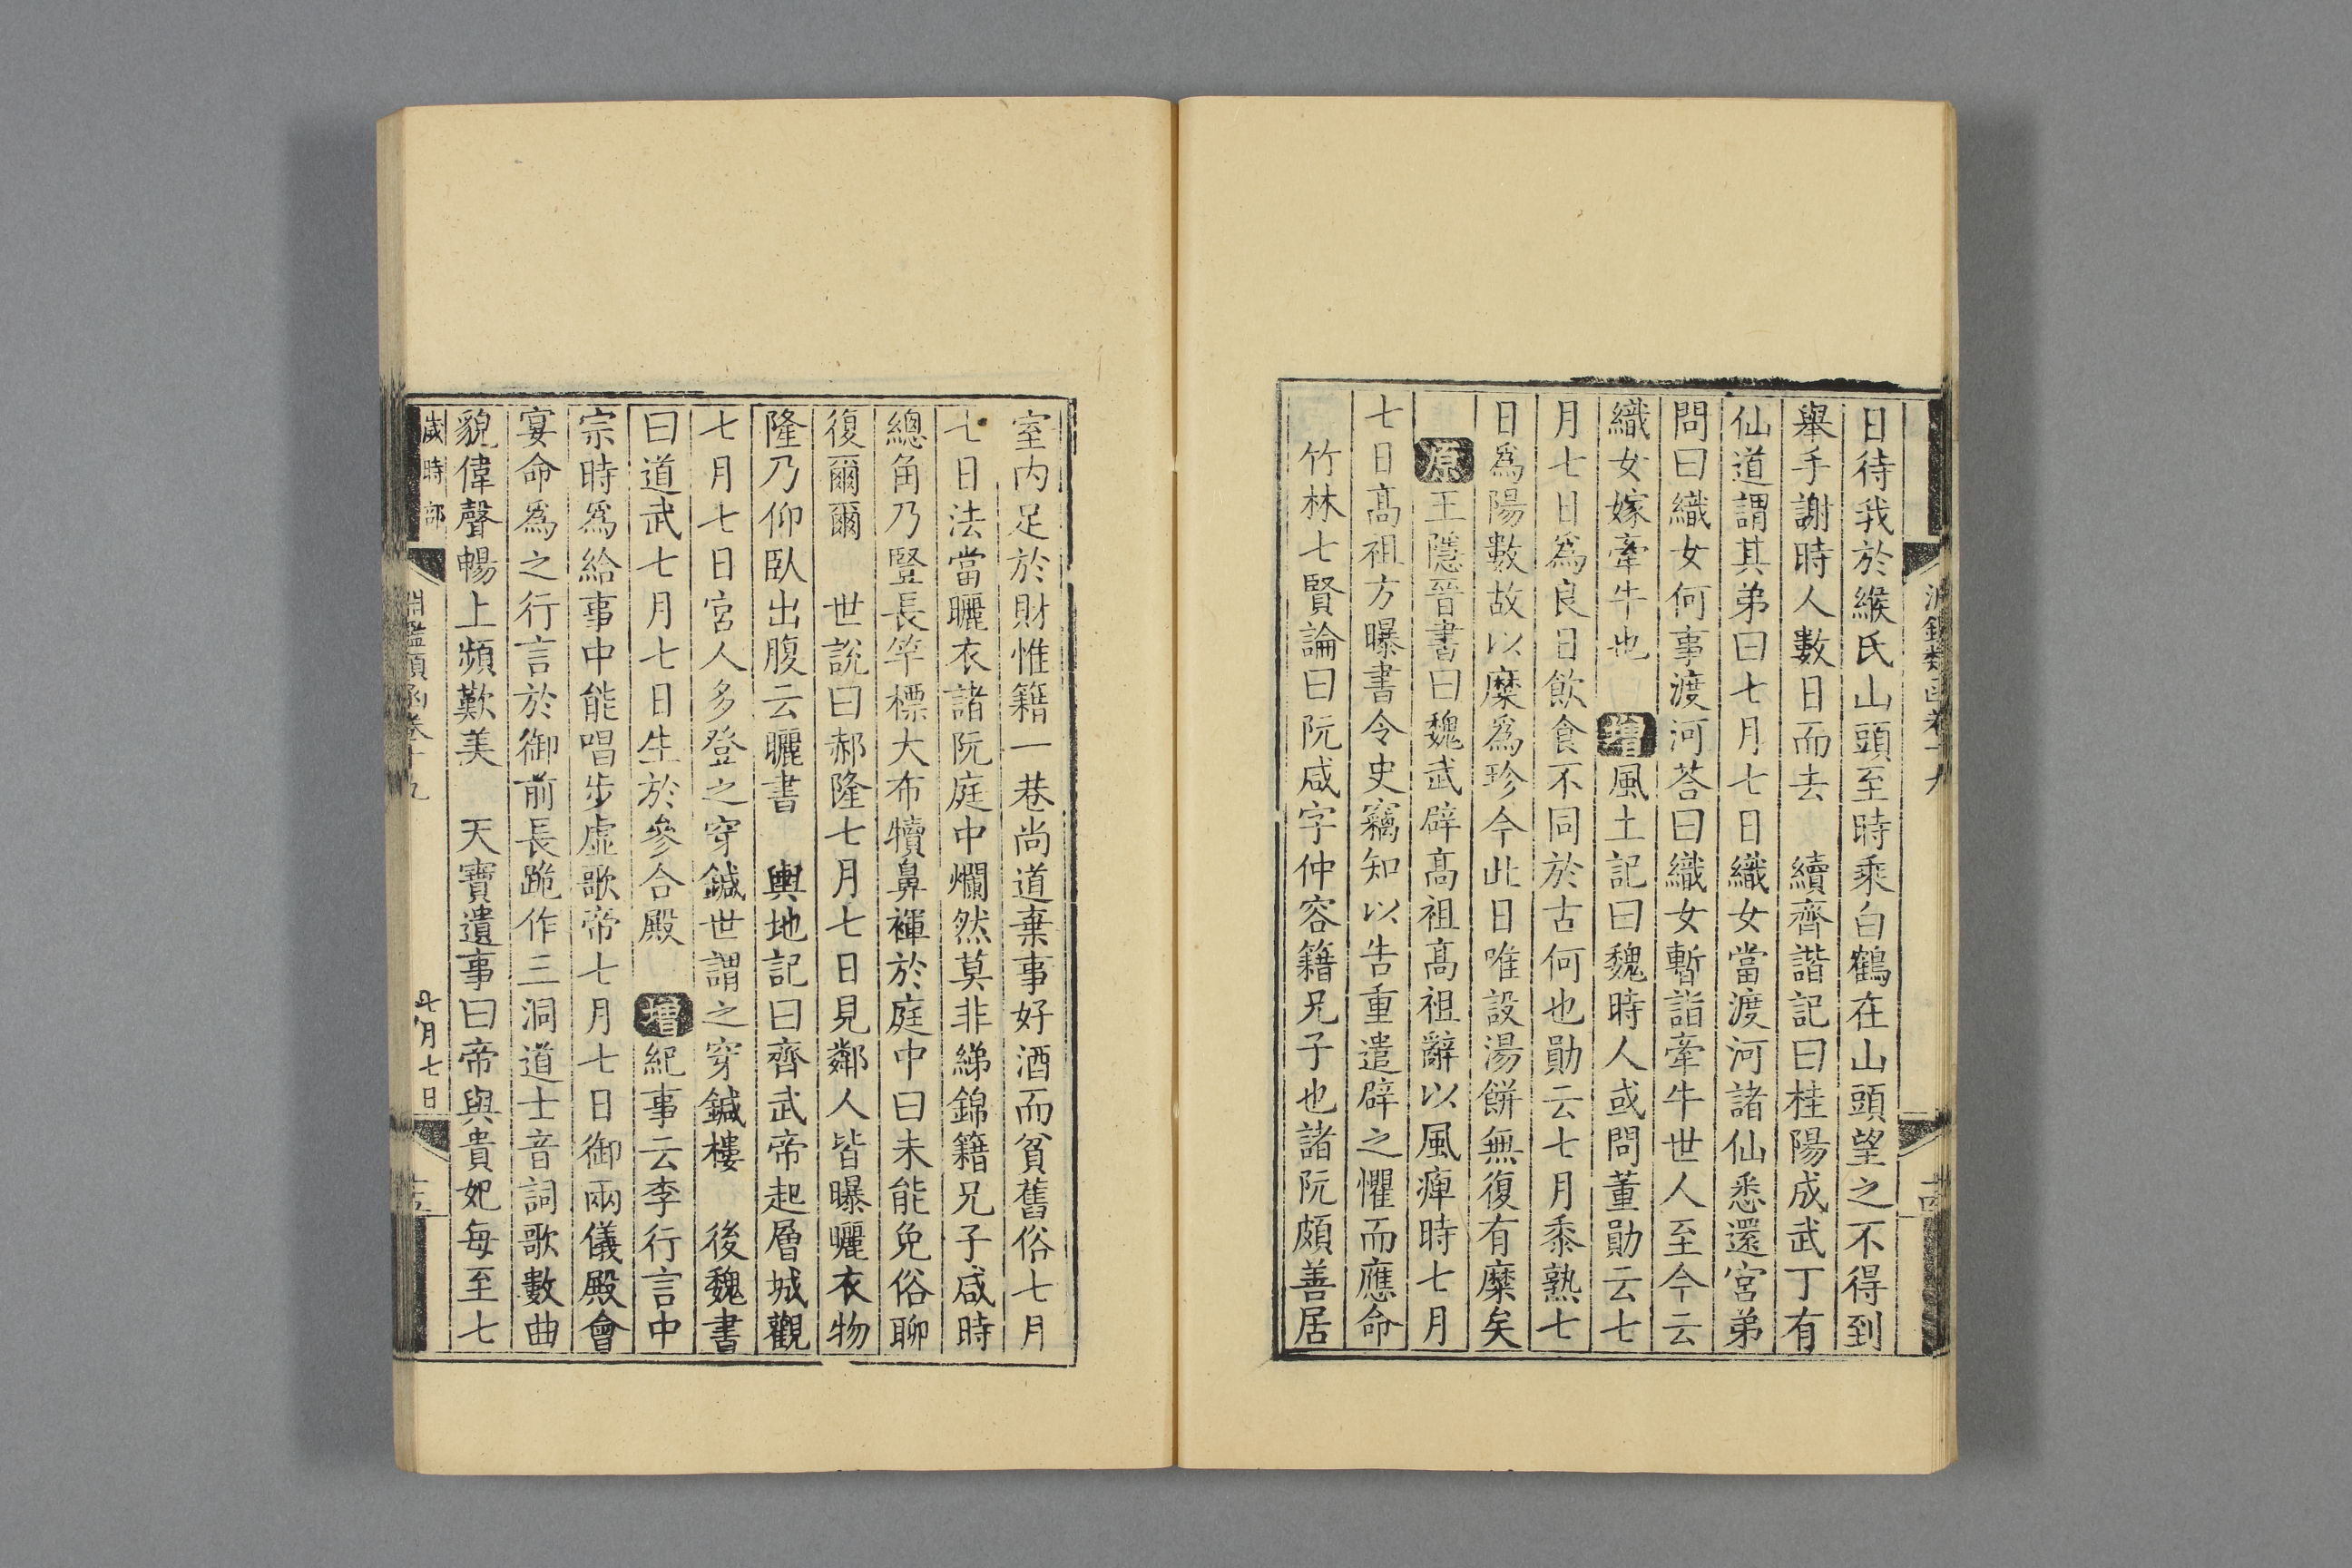 淵鑑類函卷十九
日待我於緱氏山頭至時乘白鶴在山頭望之不得到
舉手謝時人數日而去　續齊諧記曰桂陽成武丁有
仙道謂其弟曰七月七日織女當渡河諸仙悉還宮弟
問曰織女何事渡河荅曰織女暫詣牽牛世人至今云
織女嫁牽牛也　增風土記曰魏時人或問董勛云七
月七日爲良日飲食不同於古何也勛云七月黍熟七
日爲陽數故以糜爲珍今此日唯設湯餅無復有糜矣
原王隱晉書曰魏武辟髙祖髙祖辭以風痺時七月
七日髙祖方曝書令史竊知以告重遣辟之懼而應命
竹林七賢論曰阮咸字仲容籍兄子也諸阮頗善居
室內足於財惟籍一巷尚道棄事好酒而貧舊俗七月
七日法當曬衣諸阮庭中爛然莫非綈錦籍兄子咸時
總角乃豎長竿標大布犢鼻褌於庭中曰未能免俗聊
復爾爾　世說曰郝隆七月七日見鄰人皆曝曬衣物
隆乃仰臥出腹云曬書　輿地記曰齊武帝起層城觀
七月七日宮人多登之穿鍼世謂之穿鍼樓　後魏書
曰道武七月七日生於參合殿　增紀事云李行言中
宗時爲給事中能唱步虛歌帝七月七日御兩儀殿會
宴命爲之行言於御前長跪作三洞道士音詞歌數曲
貌偉聲暢上頻歎美　天寶遺事曰帝與貴妃每至七
歲時部　淵鑑類函卷十九　七月七日